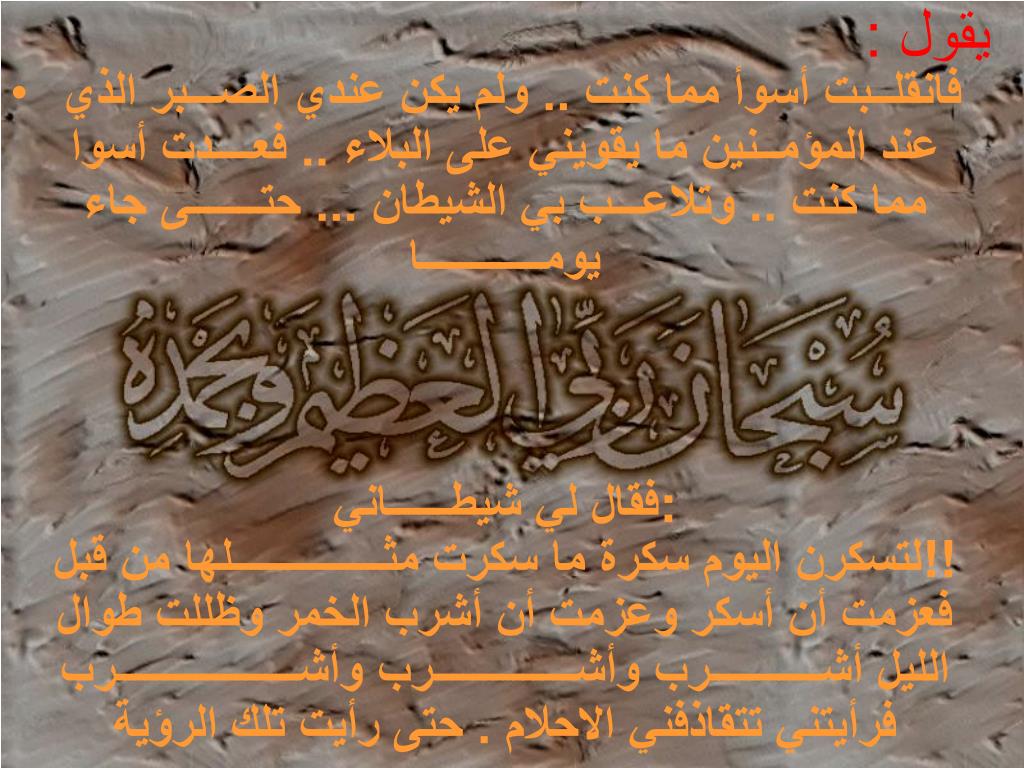 يقول :
• فانقلبت أسوأ مما كنت .. ولم يكن عندي الصبر الذي
عند المؤمنين ما يقويني على البلاء .. فعدت أسوا
مما كنت .. وتلاعب بي الشيطان ... حتى جاء
يوما
سُبْحَانَ رَبِّيَ الْعَظِيمِ وَبِحَمْدِهِ
فقال لي شيطاني:
لتسكرن اليوم سكرة ما سكرت مثلها من قبل!!
فعزمت أن أسكر وعزمت أن أشرب الخمر وظللت طوال
الليل أشرب وأشرب وأشرب
فرأيتني تتقاذفني الاحلام . حتى رأيت تلك الرؤية